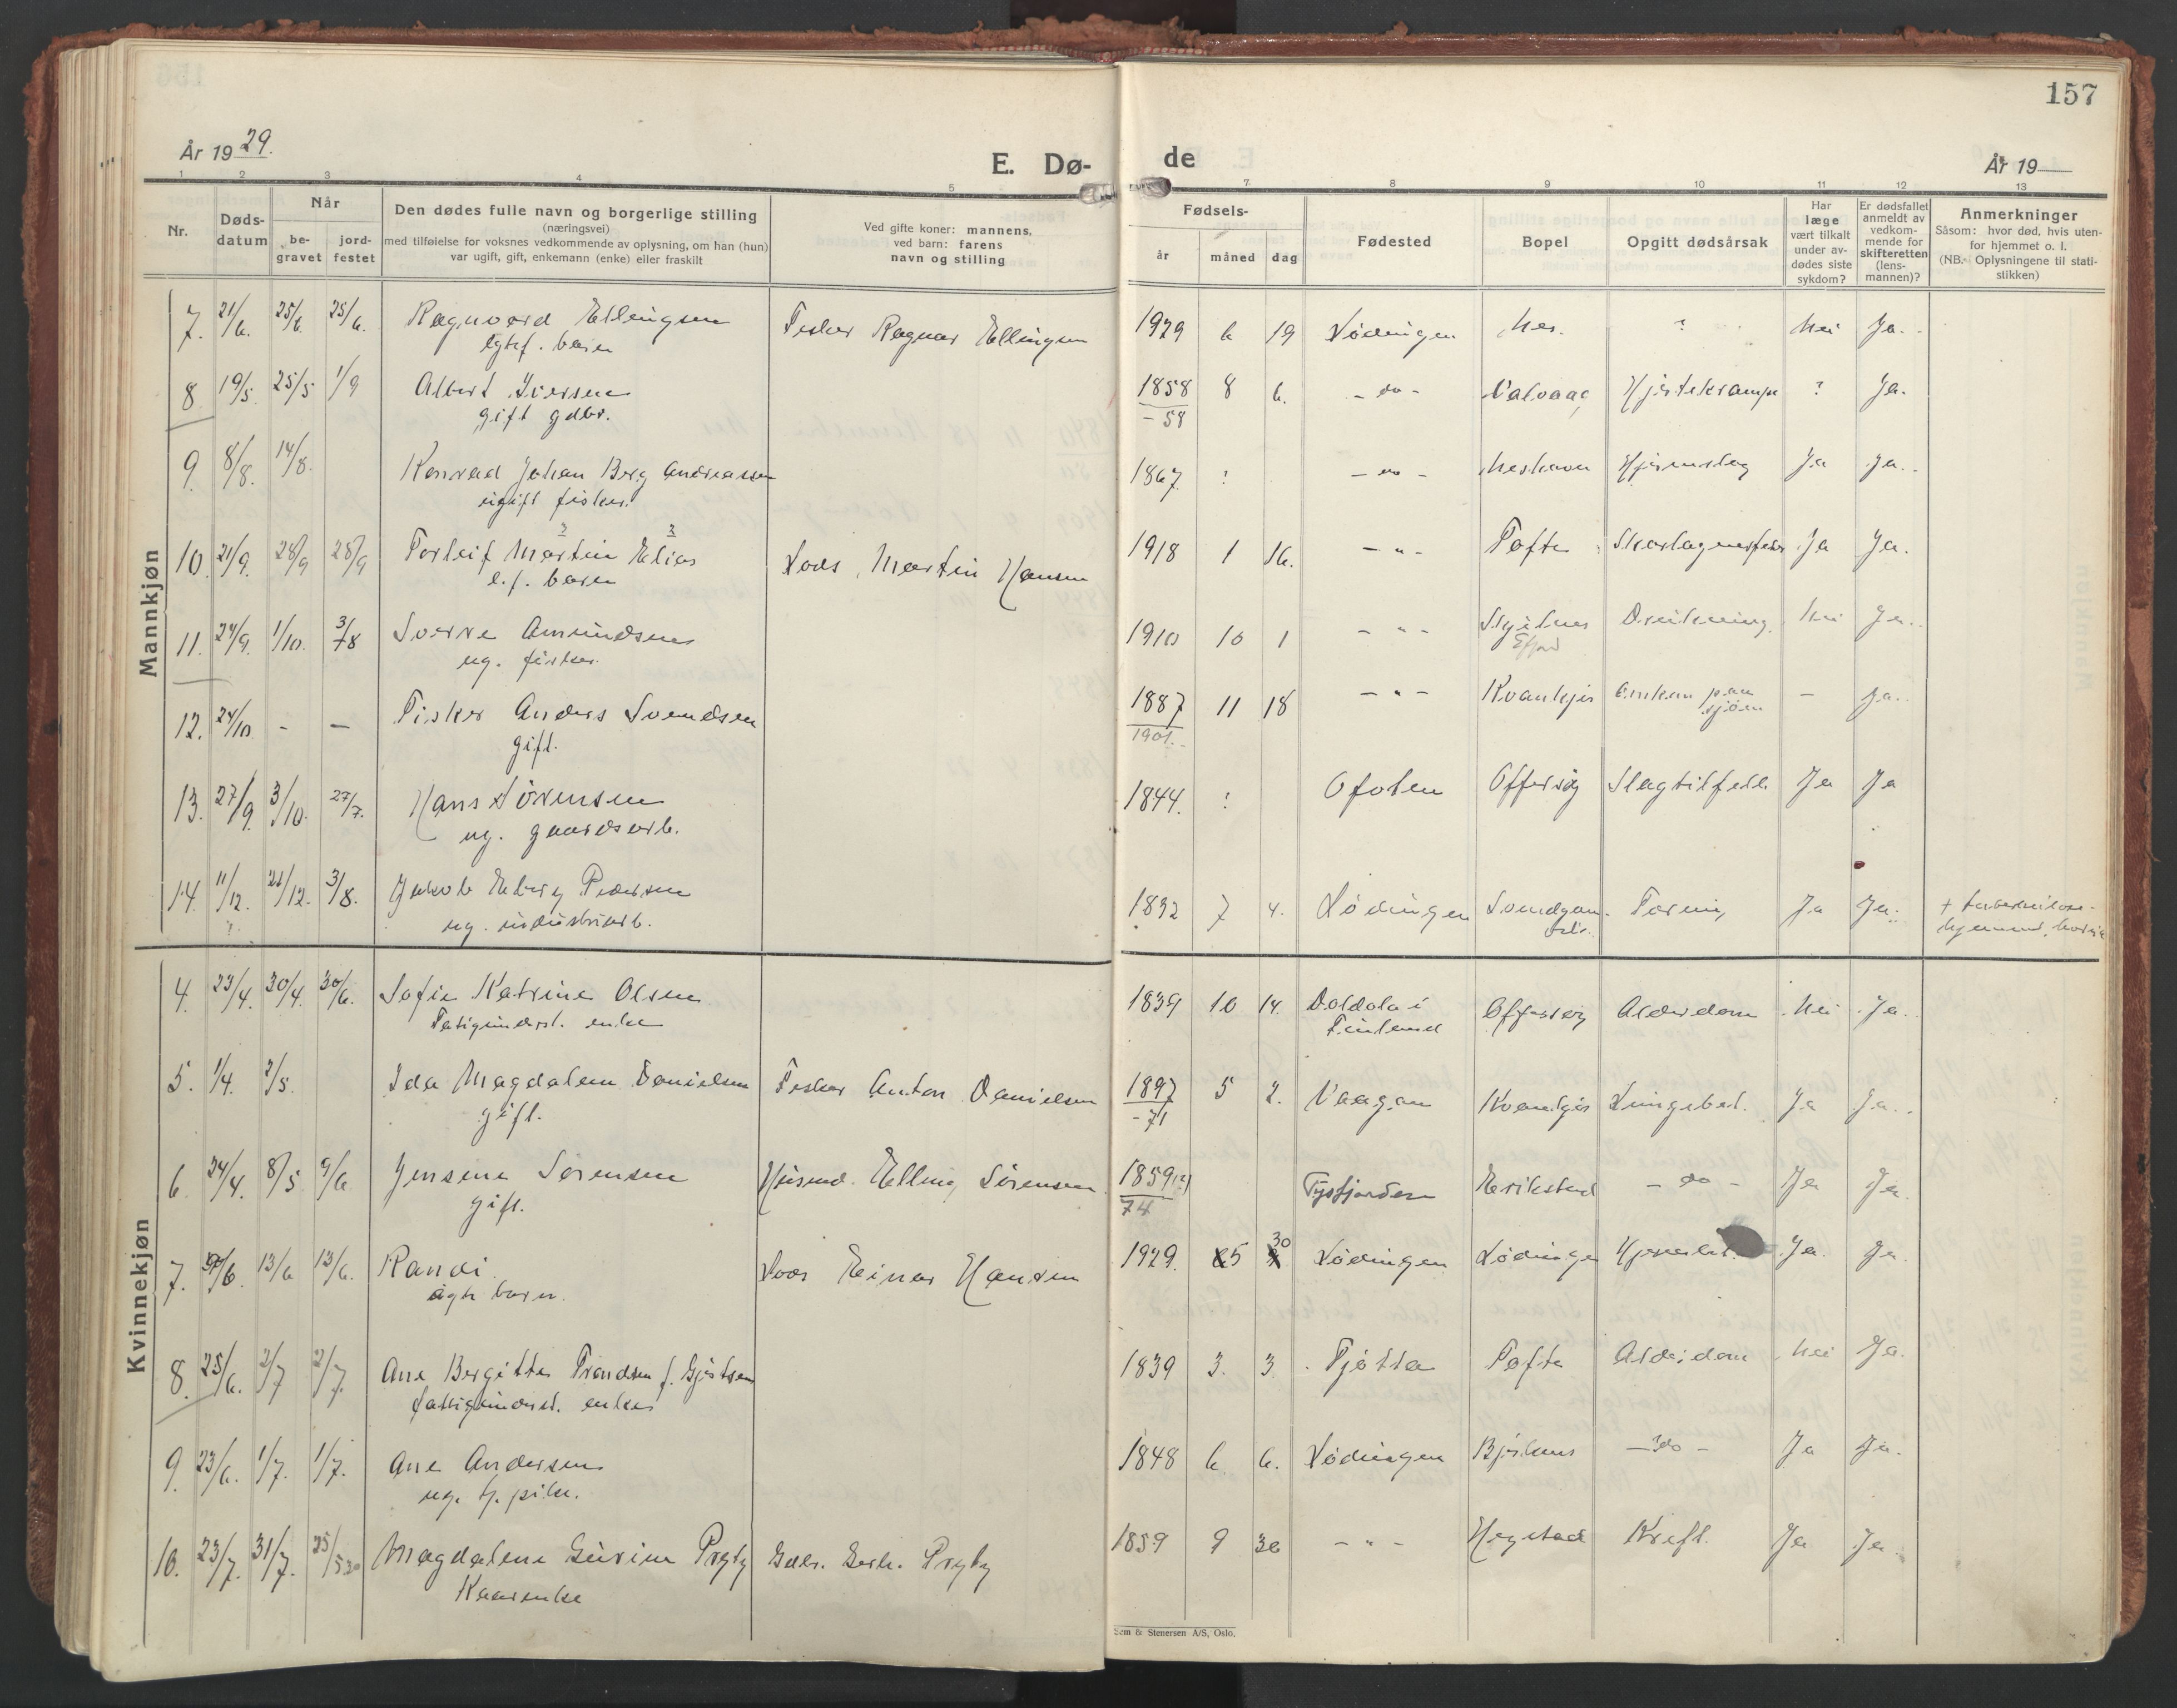 157
År 1929.
E. Dø-
de
År 19
1 2 3 4 5
7 8 9 10 11 12 13
Nr.
Døds-
datum
Når
be-
gravet
jord-
festet
Den dødes fulle navn og borgerlige stilling
(næringsvei)
med tilføielse for voksnes vedkommende av oplysning, om han (hun)
var ugift, gift, enkemann (enke) eller fraskilt
Ved gifte koner: mannens,
ved barn: farens
navn og stilling
Fødsels-
år
måned
dag
Fødested
Bopel
Opgitt dødsårsak
Har
læge
vært tilkalt
under av-
dødes siste
sykdom?
Er dødsfallet
anmeldt av
vedkom-
mende for
skifteretten
(lens-
mannen)?
Anmerkninger
Såsom: hvor død, hvis uten-
for hjemmet o. l.
(NB. Oplysningene til stati-
stikken)
Mannkjøn
7. 21/6. 25/6. 25/6. Ragnvard Ellingsen Fisker Ragnar Ellingsen 1929 6 19 Lødingen Nes. ? Nei Ja.
egtef. barn
8 19/5. 25/5 1/9 Albert Iversen 1858 8 6. - do - Valvaag Hjertekrampe ? Ja.
gift gdbr. - 58
9. 8/8. 14/8. Konrad Johan Berg Andreassen 1867. ? - do - Neshavn Hjerneslag Ja Ja.
ugift fisker.
10. 21/9. 28/9 28/9 Torleif Martin Elias Lods Martin Hansen 1918 1 16. - " - Tofte Skarlagensfeber Ja Ja.
e.f. barn
11. 24/9. 1/10. 3/8 Sverre Amundsen 1910 10 1 - " - Drukning. Nei Ja.
ug. fisker. Efjord
12. 24/10. - - Fisker Anders Svendsen 1887 11 18 - " - Kvankjer Omkom paa - Ja.
gift. 1901. sjøen
13. 27/9. 3/10. 27/7. Hans Sørensen 1844. ? Ofoten Offersøy Slagtilfelle Ja Ja
ug. gaardsarb.
14. 11/12. 21/12. 3/8. Jakob Edvin Pedersen 1892 7 4. Lødingen Tæring Ja Ja.
ug. industriarb.
Kvinnekjøn
4. 23/4. 30/4. 30/6. Sofie Katrine Olsen 1839 10 14. Doldola i Offersøy Alderdom Nei Ja.
Fattigunderst. enke Finland
5. 1/4. 2/5. Ida Magdalene Danielsen Fisker Anton Danielsen 1897 5 2. Vaagan Kvankjer Lungebet. Ja Ja.
gift. - 71
6. 24/4. 8/5 9/6 Jensine Sørensen Husmd. Elling Sørensen 1859(?) Tysfjorden Erikstad - do - Ja Ja.
gift. 74
7. 9/6. 13/6 13/6. Randi Lods Einar Hansen 1929. 5 30 Lødingen Lødingen Ja. Ja.
ægte barn.
8. 25/6. 2/7 2/7. Ane Bergitte Trondsen f. Gjertsen 1839 3. 3 Tjøtta Tofte Alderdom Nei Ja.
fattigunderst. enke
9. 23/6. 1/7. 1/7. Ane Andersen 1848 6. 6. Lødingen - do - Ja Ja.
ug.
10. 23/7. 31/7. 25/5 30 Magdalene Gurine Pryty Gdbr. Gerh. Pryty 1859 9 30 - " - Hegstad Kreft. Ja Ja.
Kaarenke
Sem & Stenersen A/S, Oslo.